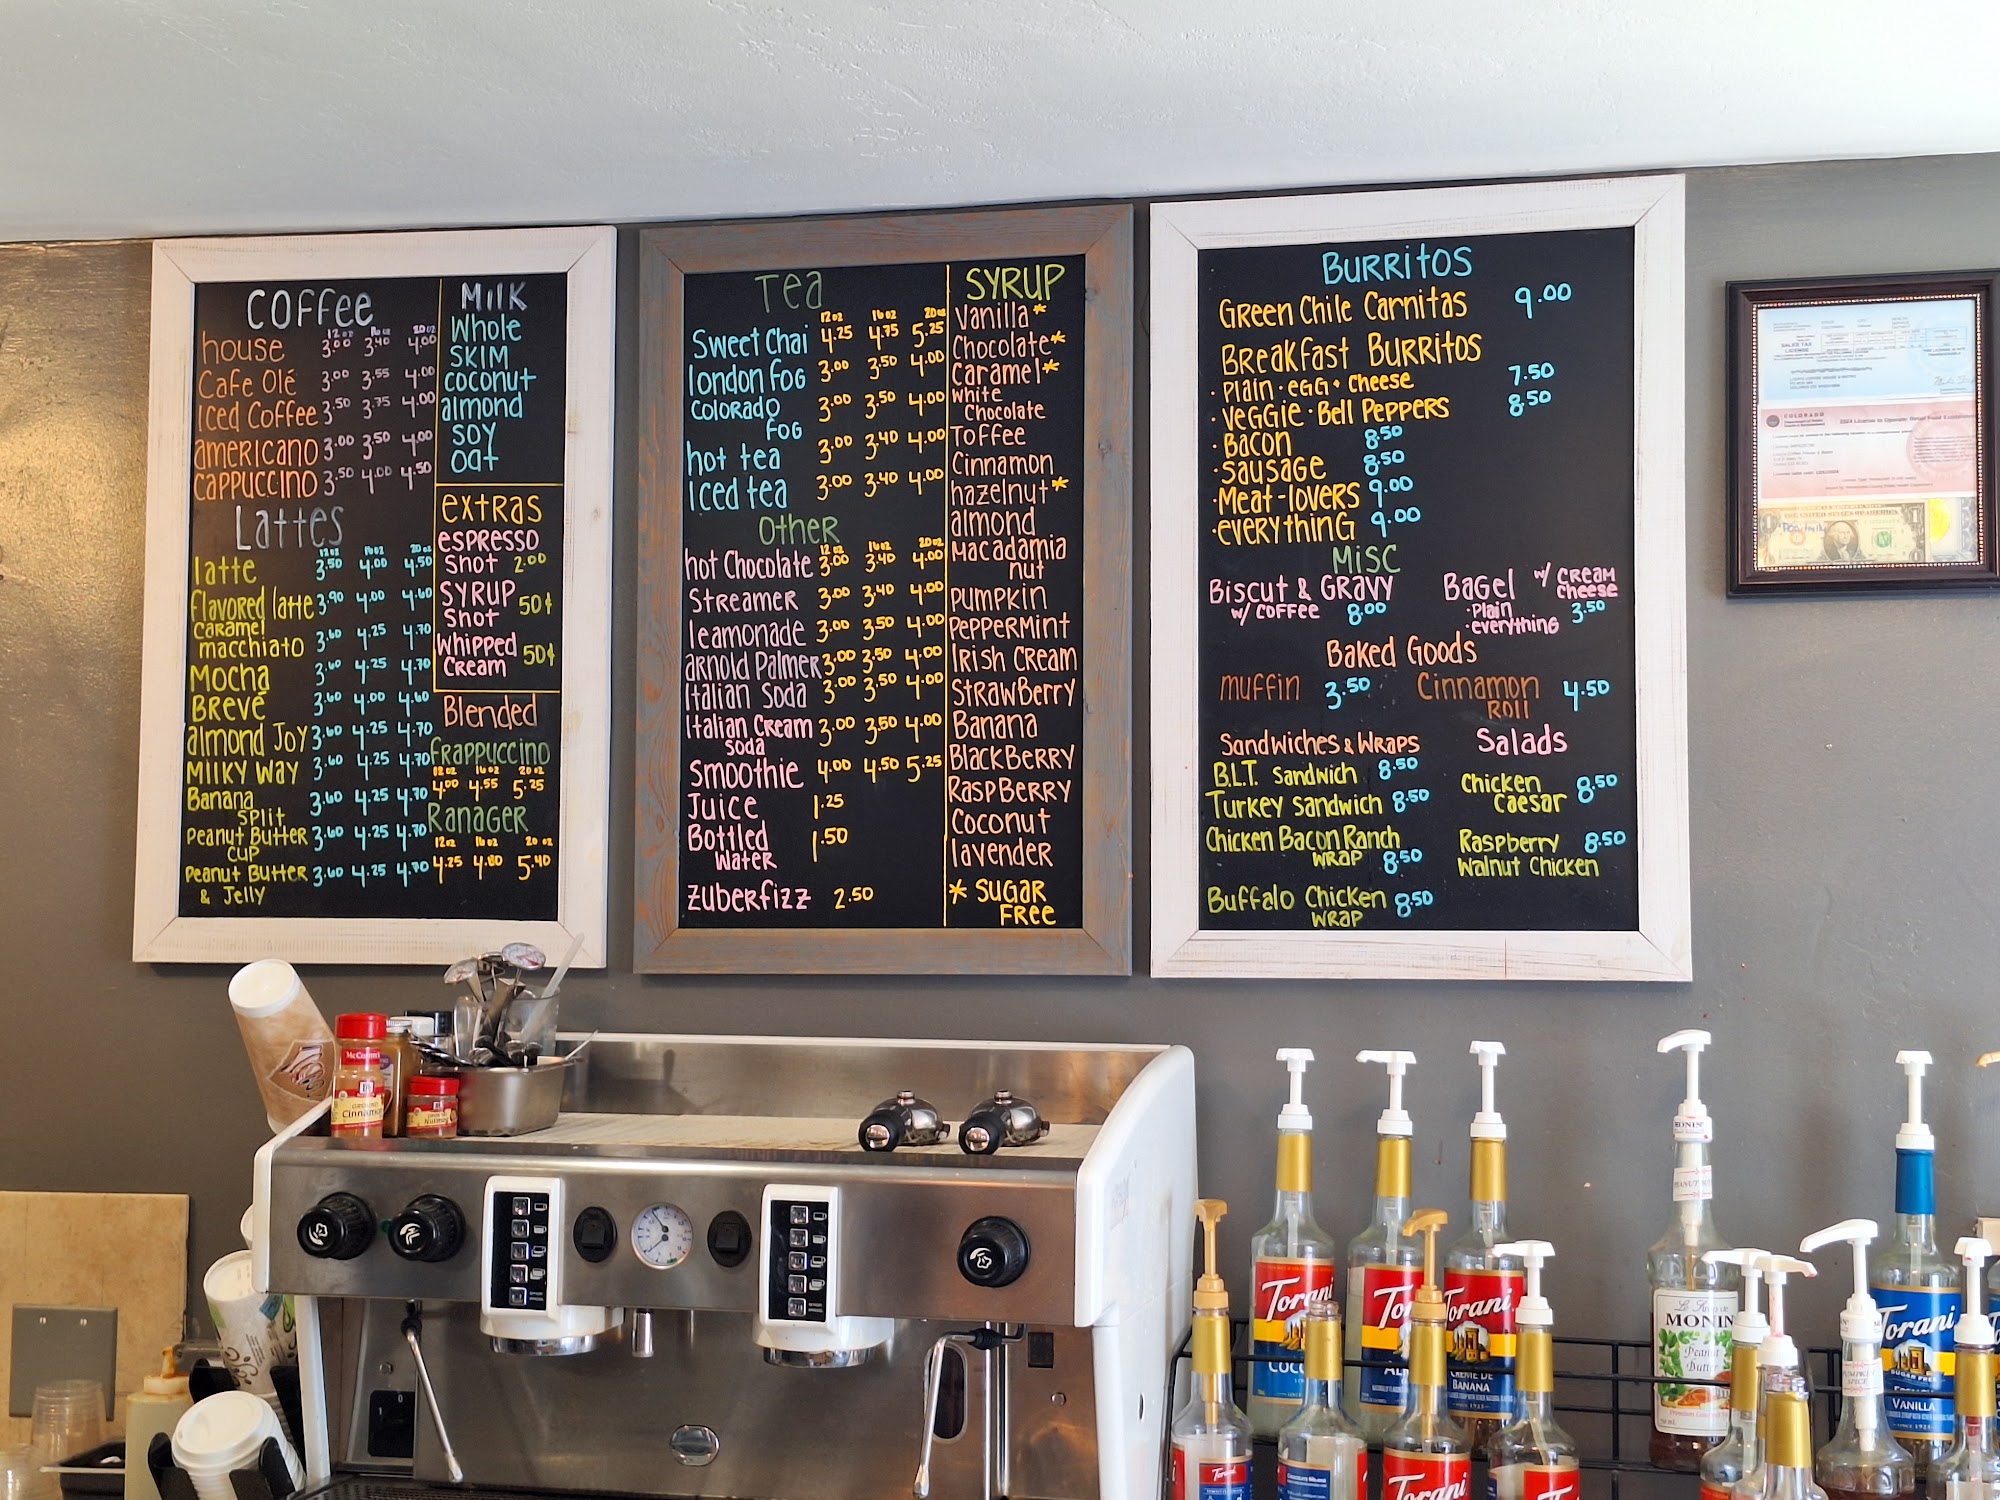 Coffee
12 oz 16 oz 20 oz
house 3.00 3.40 4.00
Cafe Olé 3.00 3.55 4.00
Iced Coffee 3.50 3.75 4.00
americano 3.00 3.50 4.00
cappuccino 3.50 4.00 4.50
Lattes
12 oz 16 oz 20 oz
latte 3.50 4.00 4.50
flavored latte 3.90 4.00 4.60
caramel
macchiato 3.60 4.25 4.70
Mocha 3.60 4.25 4.70
Brevé 3.60 4.00 4.60
almond Joy 3.60 4.25 4.70
Milky Way 3.60 4.25 4.70
Banana
Split 3.60 4.25 4.70
Peanut Butter
Cup 3.60 4.25 4.70
Peanut Butter
& Jelly 3.60 4.25 4.70
Milk
Whole
Skim
coconut
almond
soy
oat
extras
espresso
shot 2.00
Syrup
shot 50¢
Whipped
Cream 50¢
Blended
frappuccino
12 oz 16 oz 20 oz
4.00 4.55 5.25
Ranager
12 oz 16 oz 20 oz
4.25 4.80 5.40
Tea
12 oz 16 oz 20 oz
Sweet Chai 4.25 4.75 5.25
london fog 3.00 3.50 4.00
colorado
fog 3.00 3.50 4.00
hot tea 3.00 3.40 4.00
Iced tea 3.00 3.40 4.00
Other
12 oz 16 oz 20 oz
hot Chocolate 3.00 3.40 4.00
Streamer 3.00 3.40 4.00
leamonade 3.00 3.50 4.00
arnold Palmer 3.00 3.50 4.00
Italian Soda 3.00 3.50 4.00
Italian Cream
soda 3.00 3.50 4.00
Smoothie 4.00 4.50 5.25
Juice 1.25
Bottled
Water 1.50
zuberfizz 2.50
Syrup
Vanilla*
Chocolate*
Caramel*
White
Chocolate
Toffee
Cinnamon
hazelnut*
almond
Macadamia
nut
Pumpkin
Peppermint
Irish Cream
Strawberry
Banana
Blackberry
Raspberry
Coconut
lavender
* Sugar
Free
Burritos
Green Chile Carnitas 9.00
Breakfast Burritos
· Plain · egg + Cheese 7.50
· Veggie · Bell Peppers 8.50
· Bacon 8.50
· Sausage 8.50
· Meat-lovers 9.00
· everything 9.00
Misc
Biscut & Gravy
w/ coffee 8.00
Bagel w/ cream
cheese
· Plain
· everything 3.50
Baked Goods
muffin 3.50
Cinnamon
Roll 4.50
Sandwiches & Wraps
B.L.T. Sandwich 8.50
Turkey Sandwich 8.50
Chicken Bacon Ranch
wrap 8.50
Buffalo Chicken
wrap 8.50
Salads
Chicken
Caesar 8.50
Raspberry
Walnut Chicken 8.50
SALES TAX
LICENSE
COLORADO
McCormick
Cinnamon
Nutmeg
Torani
Torani
Torani
CRÈME DE
BANANA
MONIN
MONIN
Peanut
Butter
PUMPKIN
SPICE
Torani
SUGAR FREE
VANILLA
Torani
Torani
Torani